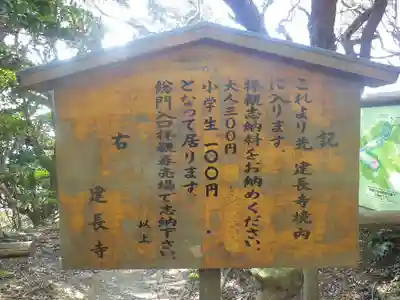 記
これより先 建長寺境内
に入ります。
拝観志納料をお納めください。
大人三〇〇円
小学生 一〇〇円
となって居ります。
総門入口拝観券売場で志納下さい。
以上
右
建長寺